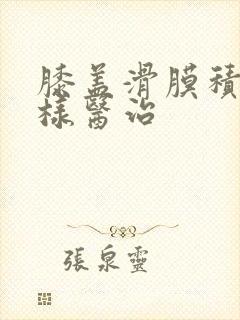 膝盖滑膜積
樣醫治
張泉靈